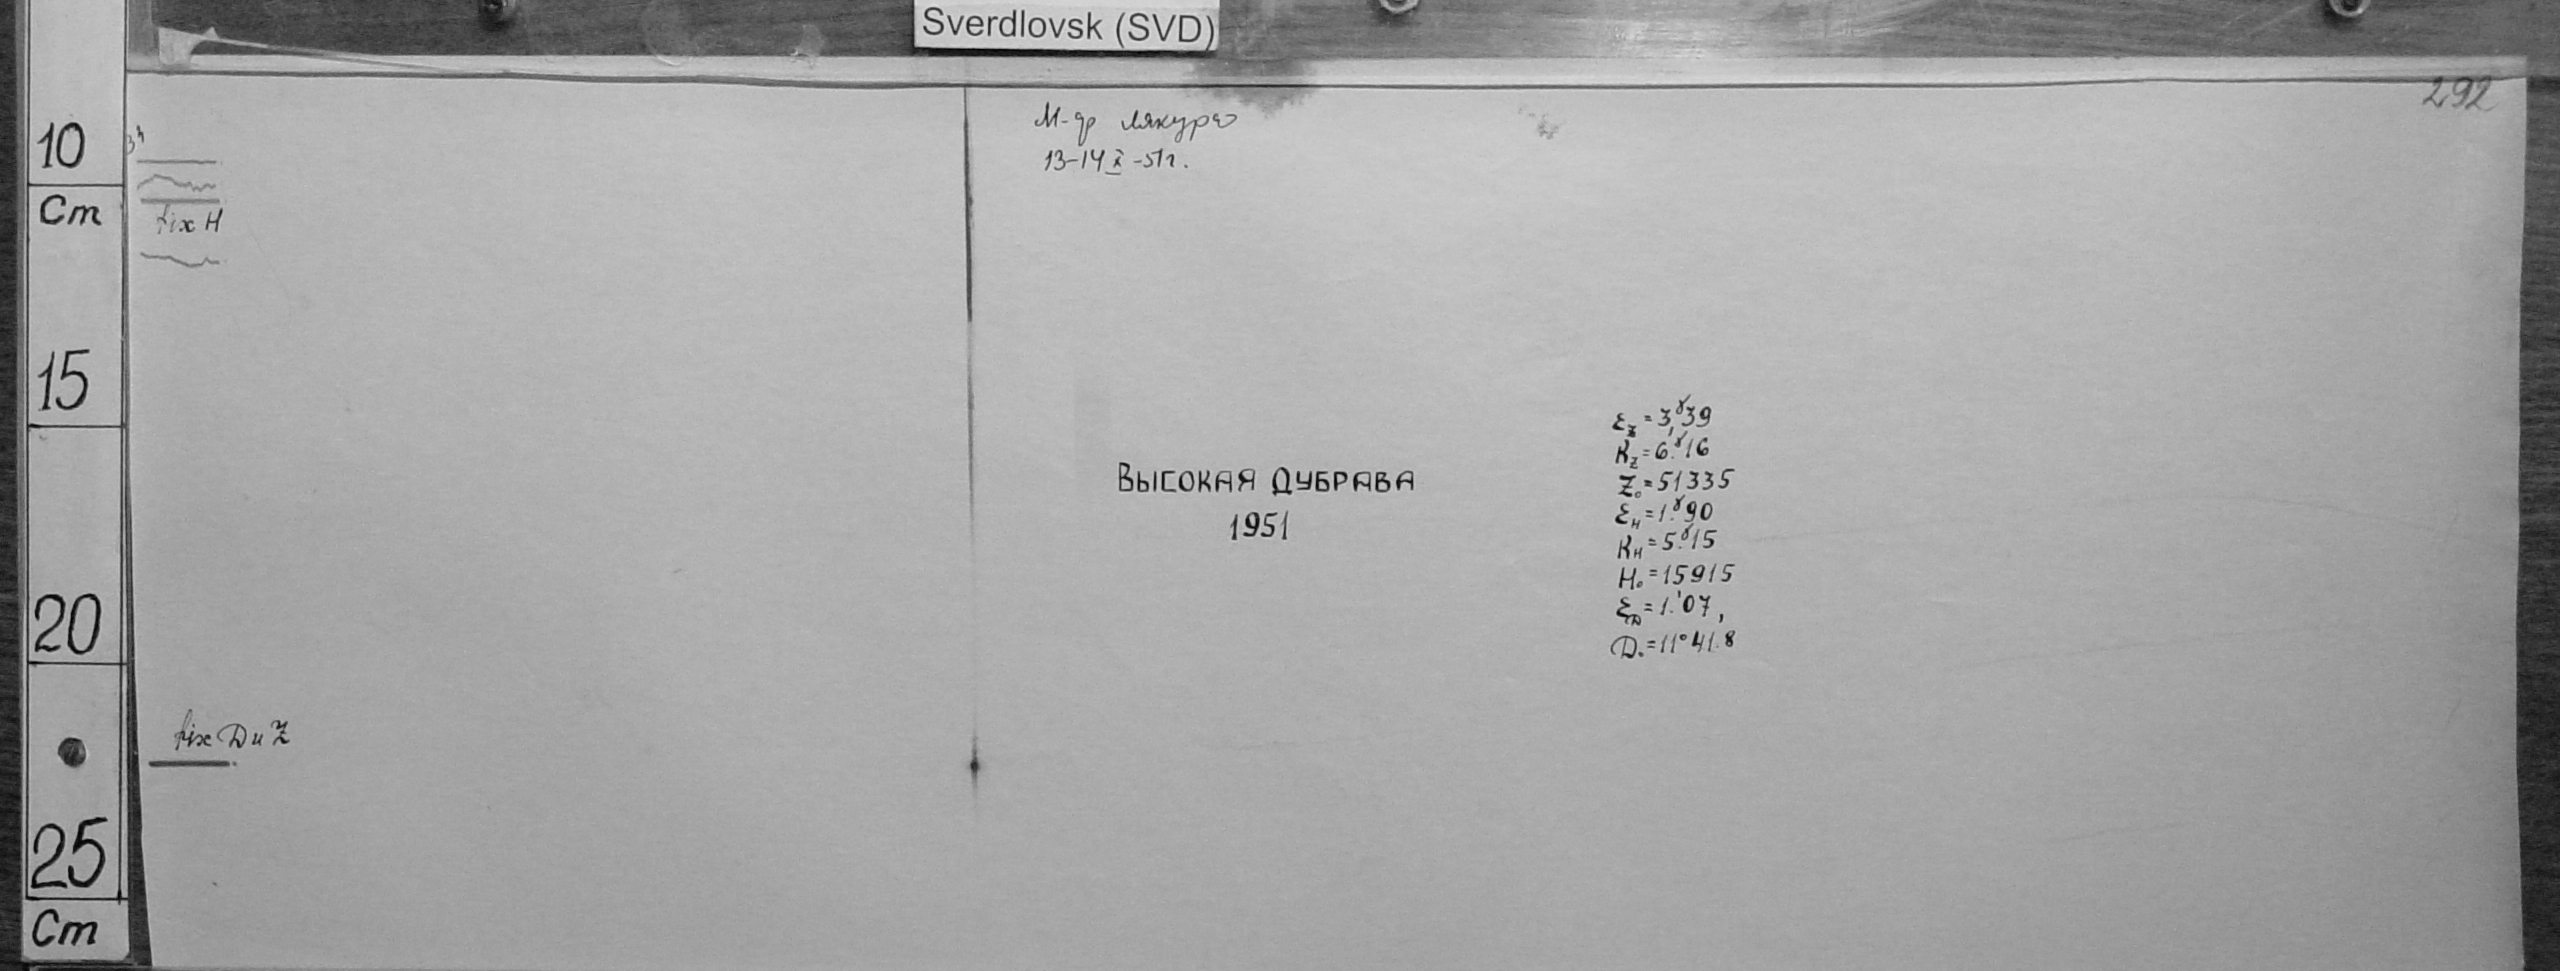 Sverdlovsk (SVD)
292
10
Cm
15
20
25
Cm
fix H
fix D и Z
М-др Лякурэ
13-14 X -51г.
ВЫСОКАЯ ДУБРАВА
1951
εz = 3,ˠ39
Kz = 6.ˠ16
Z₀ = 51335
εн = 1.ˠ90
Kн = 5.ˠ15
H₀ = 15915
εD = 1.'07,
D₀ = 11°41.8